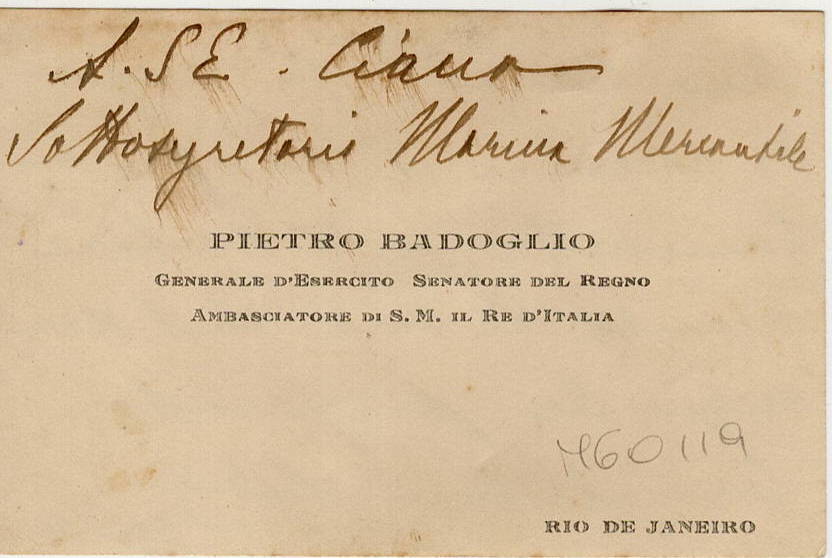 A. S E. Ciano
Sottosegretario Marina Mercantile
PIETRO BADOGLIO
GENERALE D'ESERCITO SENATORE DEL REGNO
AMBASCIATORE DI S. M. IL RE D'ITALIA
M60119
RIO DE JANEIRO